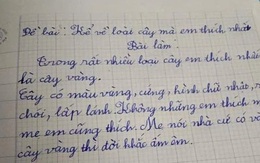 Đề bài: Kể về loài cây mà em thích nhất
Bài làm
Trong rất nhiều loại cây em thích nhất
là cây vàng.
Cây có màu vàng, cứng, hình chữ nhật,
chói, lấp lánh. Không những em thích m
mẹ em cũng thích. Mẹ nói nhà cứ có v
cây vàng thì đời khắc ấm êm.